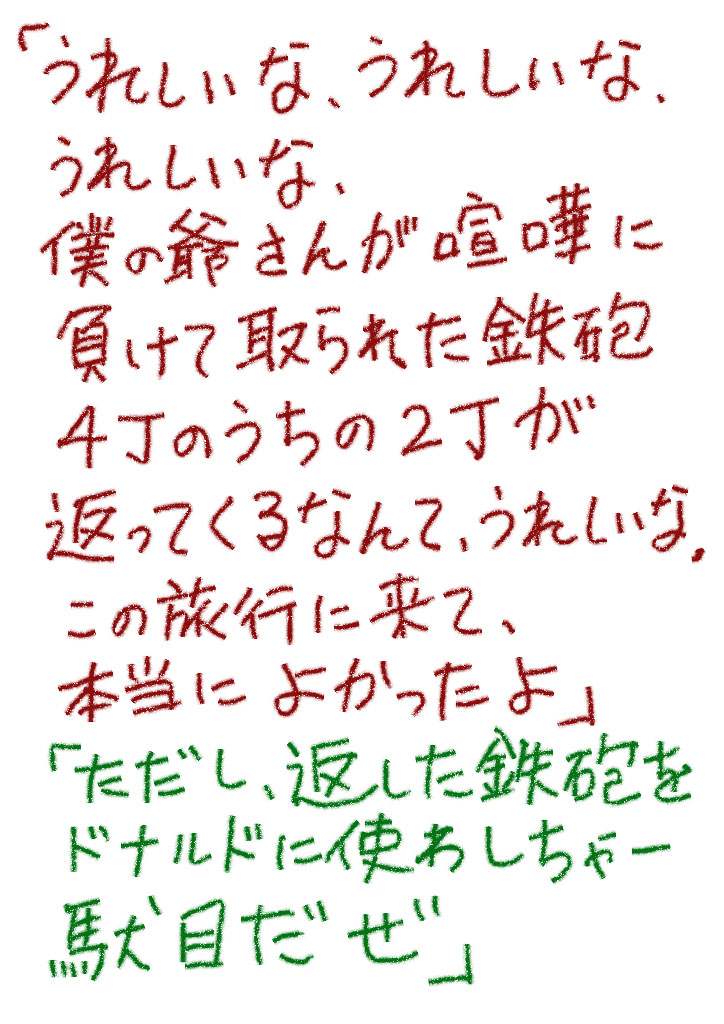 「うれしいな、うれしいな、
うれしいな、
僕の爺さんが喧嘩に
負けて取られた鉄砲
4丁のうちの2丁が
返ってくるなんて、うれしいな。
この旅行に来て、
本当によかったよ」
「ただし、返した鉄砲を
ドナルドに使わしちゃー
駄目だぜ」